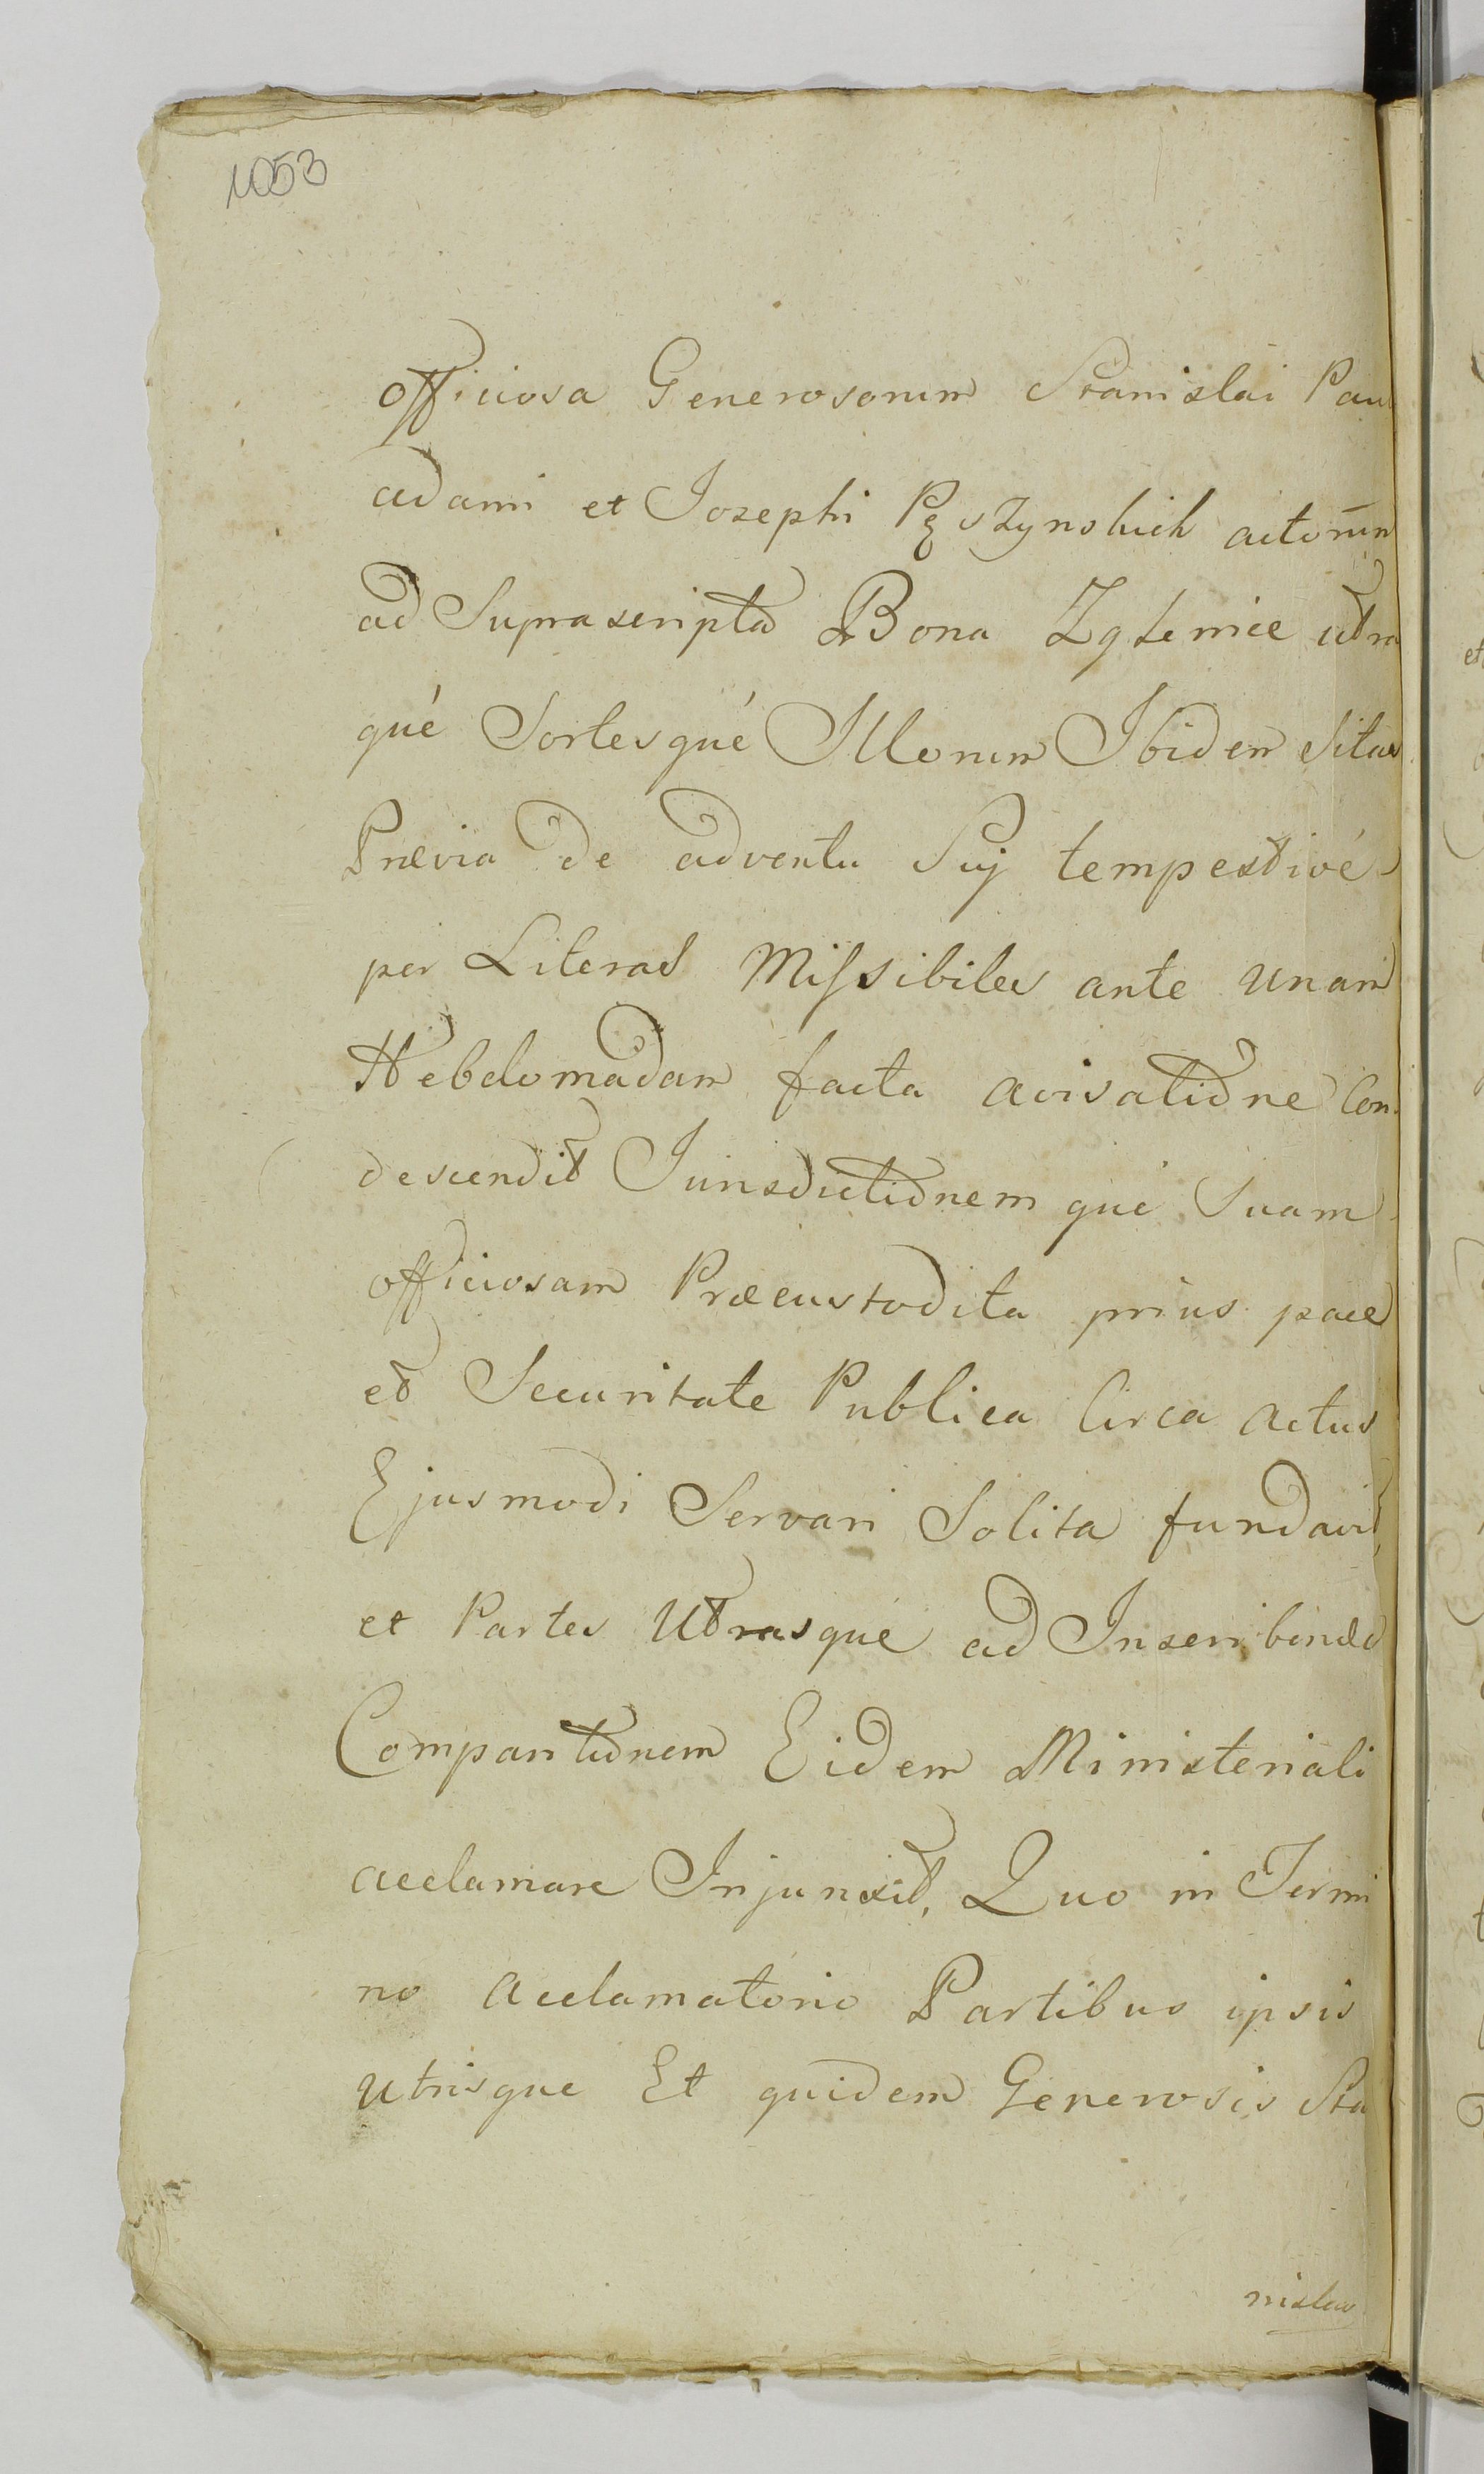 1053
officiosa Generosorum Stanislai Pau
adami et Josephi Pęszynskich actorum
ad Suprascripta Bona Zglenice utra
qué Sortesqué Illorum Ibidem Sitas
Prævia de adventu Suj tempestivé
per Literas Missibiles ante unam
Hebdomadam facta avisatione Con
descendit Jurisdictionem qué Suam
officiosam Præcustodita prius pace
et Securitate Publica Circa actus
Ejusmodi Servari Solita fundavit
et Partes Utrasqué ad Inscribendæ
Comparitionem Eidem Ministeriali
acclamare Injunxit, Quo in Termi
no acclamatorio Partibus ipsis
utrisque Et quidem Generosis Sta
nislao